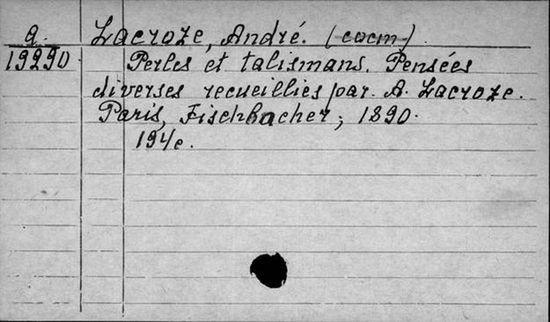 a. Lacroze, André. (cocm)
19290 Perles et talismans. Pensées
diverses recueillies par A. Lacroze.
Paris, Fischbacher; 1890.
194c.